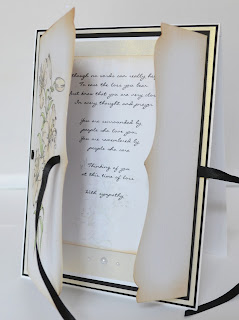 though no words can really help
To ease the loss you bear
Just know that you are very close
In every thought and prayer
You are remembered by
people who love you
You are remembered by
people who care
Thinking of you
at this time of loss
With sympathy